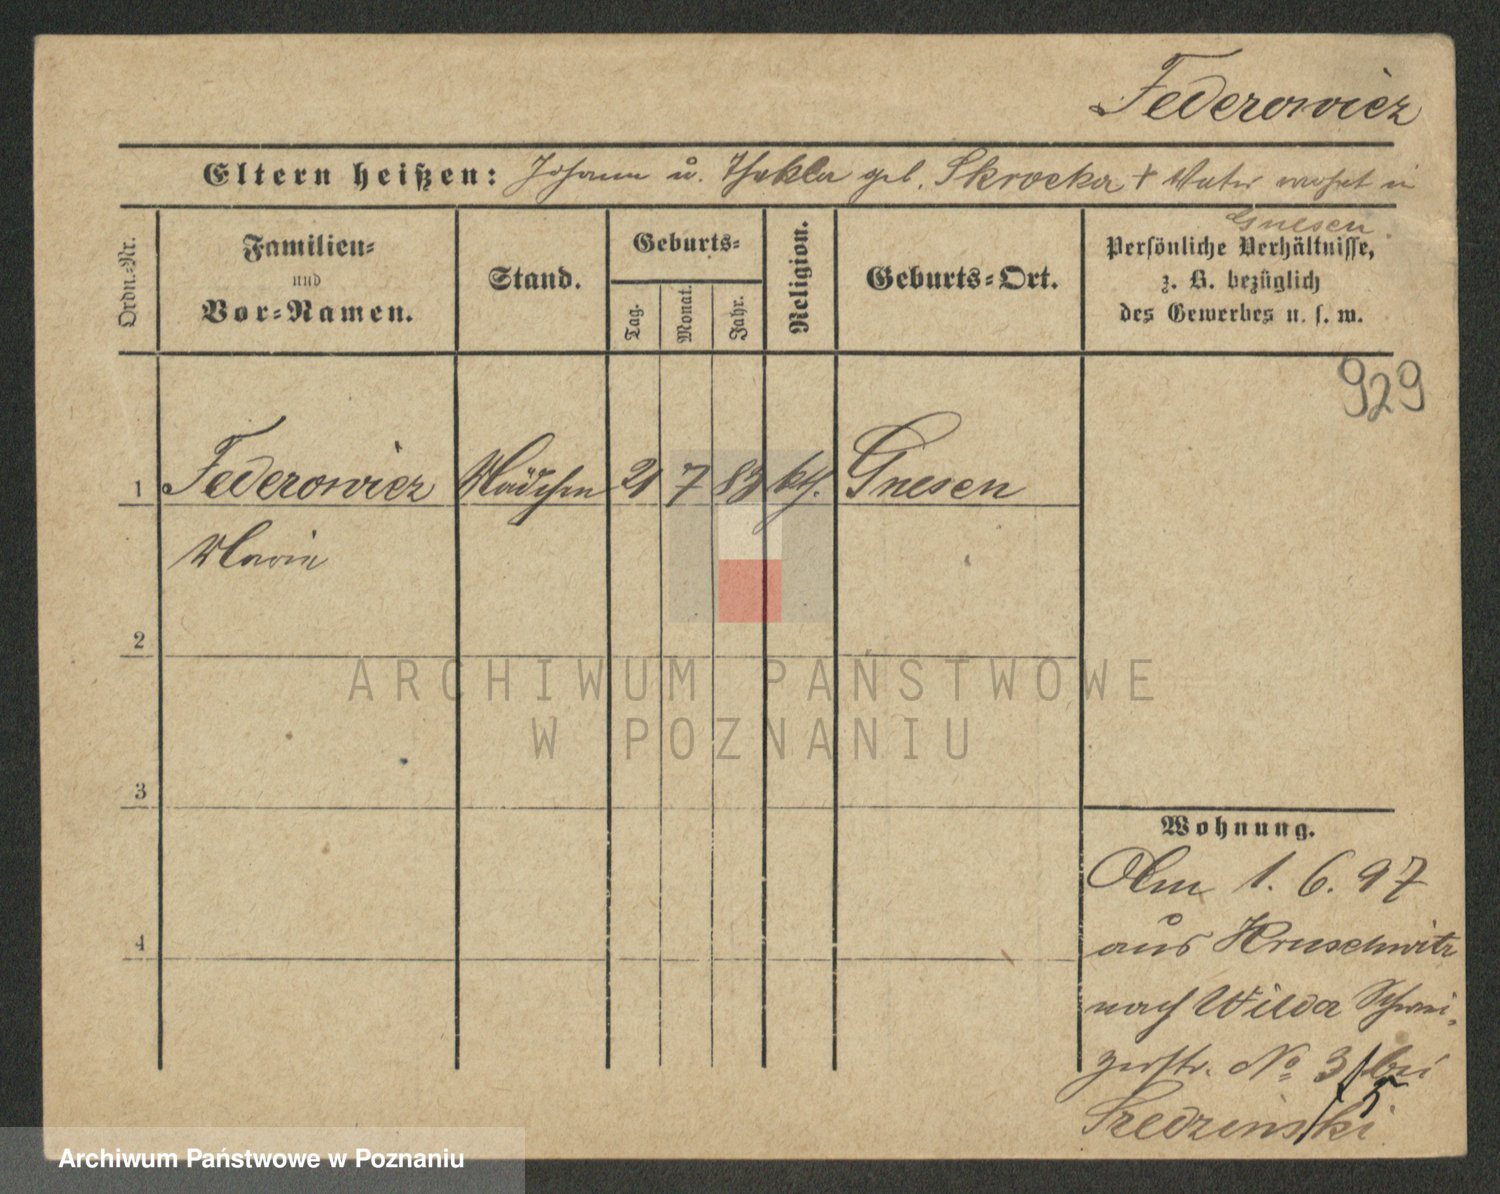 Federowicz
Eltern heißen: Johann u. Thekla geb. Skrocka + Vater wohnt in
Gnesen.
Ordn.-Nr.
Familien-
und
Vor-Namen.
Stand.
Geburts-
Tag.
Monat.
Jahr.
Religion.
Geburts-Ort.
Persönliche Verhältnisse,
z. B. bezüglich
des Gewerbes u. s. w.
929
1 Federowicz Mädchen 21 7 83 kth. Gnesen
Marie
2
3
4
Wohnung.
Am 1. 6. 97
aus Kruschwitz
nach Wilda Schwei-
zerstr. No 3/5 bei
Szedzinski
ARCHIWUM PAŃSTWOWE
W POZNANIU
Archiwum Państwowe w Poznaniu